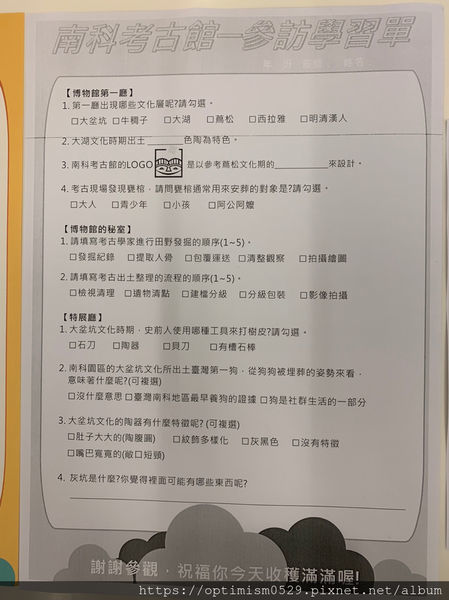 南科考古館—參訪學習單
年 班 座號: 姓名:
【博物館第一廳】
1. 第一廳出現哪些文化層呢?請勾選。
□大坌坑 □牛稠子 □大湖 □蔦松 □西拉雅 □明清漢人
2. 大湖文化時期出土________色陶為特色。
3. 南科考古館的LOGO 是以參考蔦松文化期的____________來設計。
4. 考古現場發現甕棺,請問甕棺通常用來安葬的對象是?請勾選。
□大人 □青少年 □小孩 □阿公阿嬤
【博物館的秘室】
1. 請填寫考古學家進行田野發掘的順序(1~5)。
□發掘紀錄 □提取人骨 □包覆運送 □清整觀察 □拍攝繪圖
2. 請填寫考古出土整理的流程的順序(1~5)。
□檢視清理 □遺物清點 □建檔分級 □分級包裝 □影像拍攝
【特展廳】
1. 大坌坑文化時期,史前人使用哪種工具來打樹皮?請勾選。
□石刀 □陶器 □貝刀 □有槽石棒
2. 南科園區的大坌坑文化所出土臺灣第一狗,從狗狗被埋葬的姿勢來看,
意味著什麼呢?(可複選)
□沒什麼意思 □臺灣南科地區最早養狗的證據 □狗是社群生活的一部分
3. 大坌坑文化的陶器有什麼特徵呢? (可複選)
□肚子大大的(陶腹圓) □紋飾多樣化 □灰黑色 □沒有特徵
□嘴巴寬寬的(敞口短頸)
4. 灰坑是什麼?你覺得裡面可能有哪些東西呢?
謝謝參觀,祝福你今天收穫滿滿喔!
https://optimism0529.pixnet.net/album